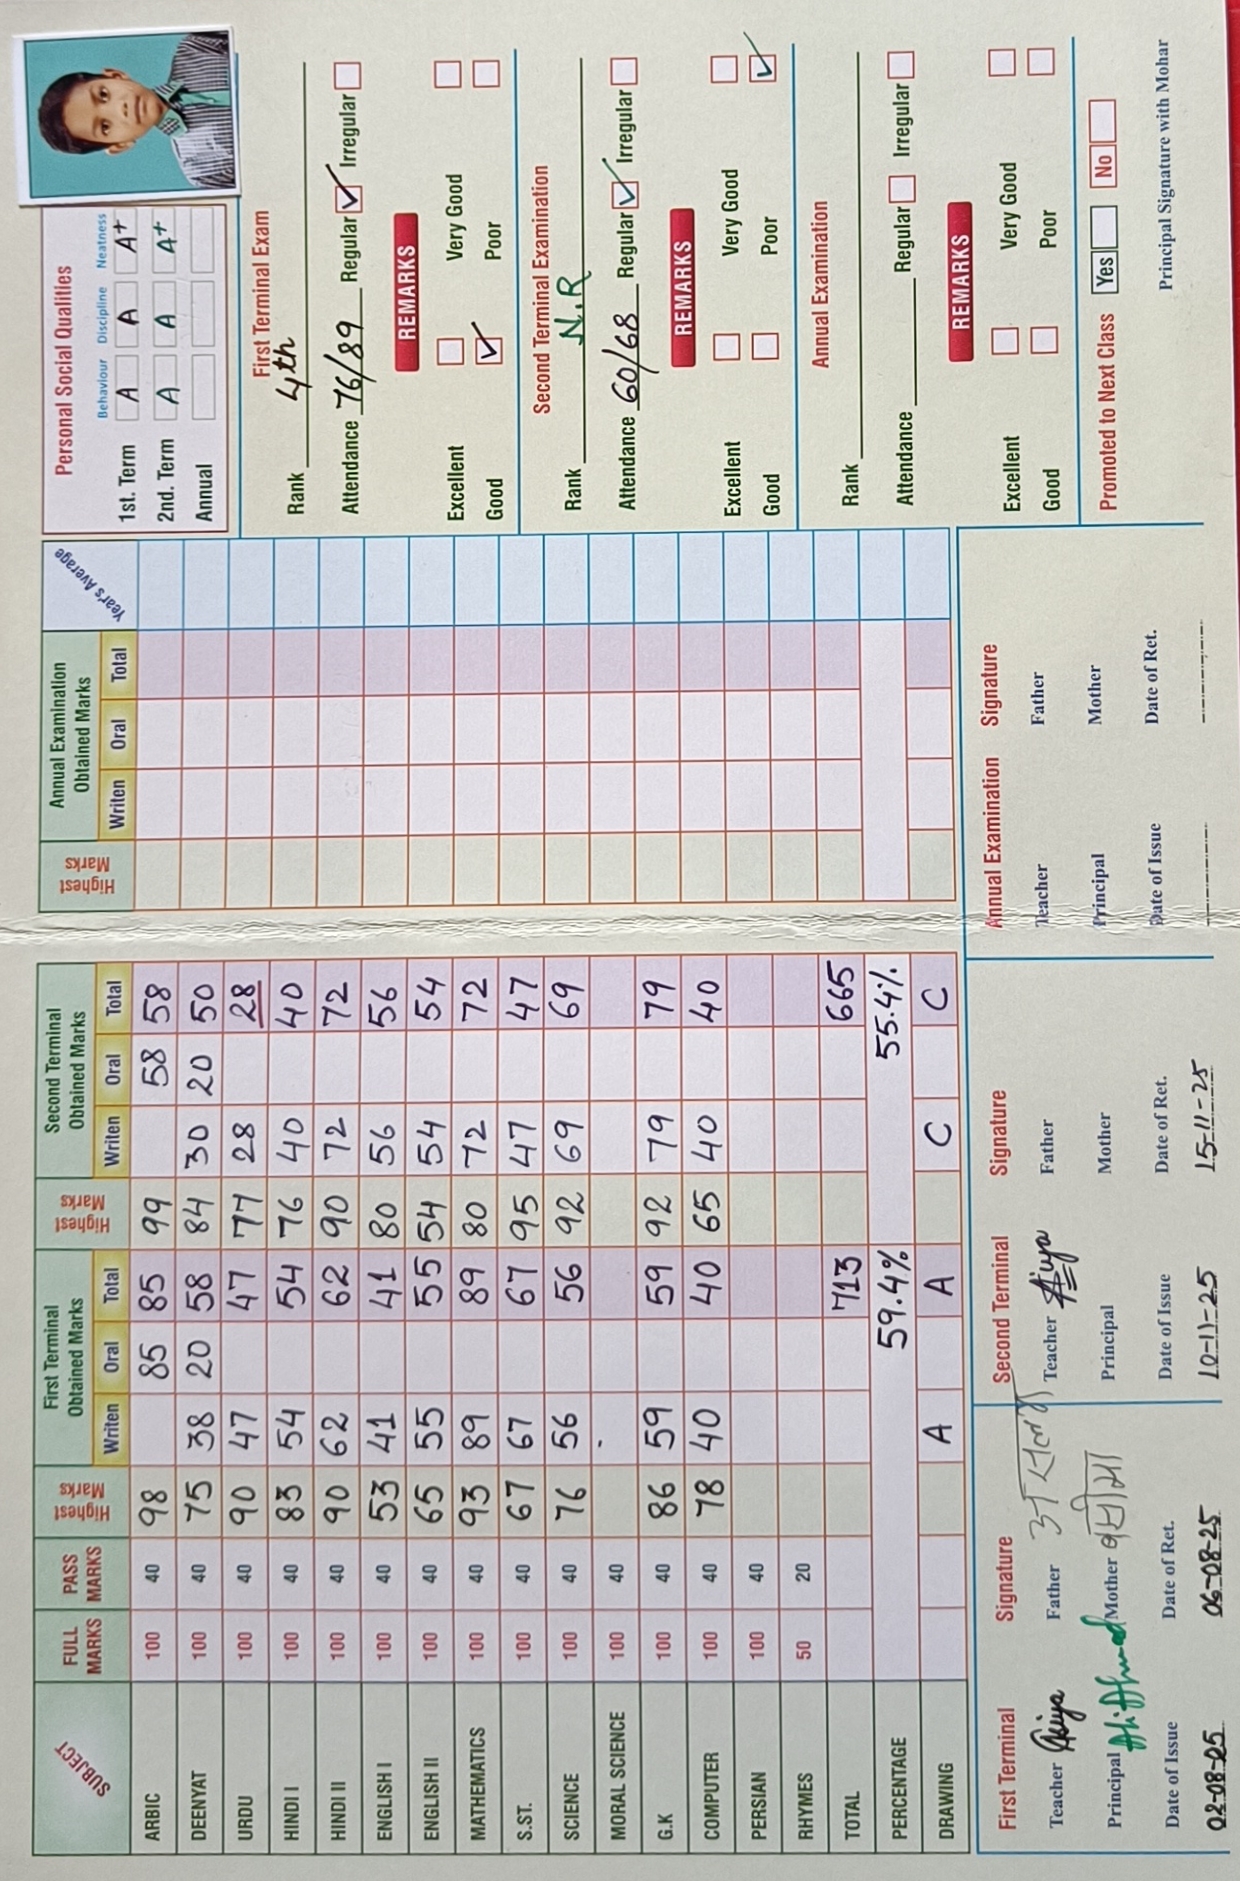 SUBJECT FULL MARKS PASS MARKS Highest Marks First Terminal Obtained Marks Writen Oral Total Highest Marks Second Terminal Obtained Marks Writen Oral Total Highest Marks Annual Examination Obtained Marks Writen Oral Total Year's Average
ARBIC 100 40 98 85 85 99 58 58
DEENYAT 100 40 75 38 20 58 84 30 20 50
URDU 100 40 90 47 47 77 28 28
HINDI I 100 40 83 54 54 76 40 40
HINDI II 100 40 90 62 62 90 72 72
ENGLISH I 100 40 53 41 41 80 56 56
ENGLISH II 100 40 65 55 55 54 54 54
MATHEMATICS 100 40 93 89 89 80 72 72
S.ST. 100 40 67 67 67 95 47 47
SCIENCE 100 40 76 56 56 92 69 69
MORAL SCIENCE 100 40
G.K 100 40 86 59 59 92 79 79
COMPUTER 100 40 78 40 40 65 40 40
PERSIAN 100 40
RHYMES 50 20
TOTAL 713 665
PERCENTAGE 59.4% 55.4%
DRAWING A A C C
First Terminal Signature
Teacher Father
Principal Ali Ahmad Mother
Date of Issue Date of Ret.
02-08-25 06-08-25
Second Terminal Signature
Teacher Father
Principal Mother
Date of Issue Date of Ret.
10-11-25 15-11-25
Annual Examination Signature
Teacher Father
Principal Mother
Date of Issue Date of Ret.
Personal Social Qualities
Behaviour Discipline Neatness
1st. Term A A A+
2nd. Term A A A+
Annual
First Terminal Exam
Rank 4th
Attendance 76/89 Regular Irregular
REMARKS
Excellent Very Good
Good Poor
Second Terminal Examination
Rank N.R
Attendance 60/68 Regular Irregular
REMARKS
Excellent Very Good
Good Poor
Annual Examination
Rank
Attendance Regular Irregular
REMARKS
Excellent Very Good
Good Poor
Promoted to Next Class Yes No
Principal Signature with Mohar